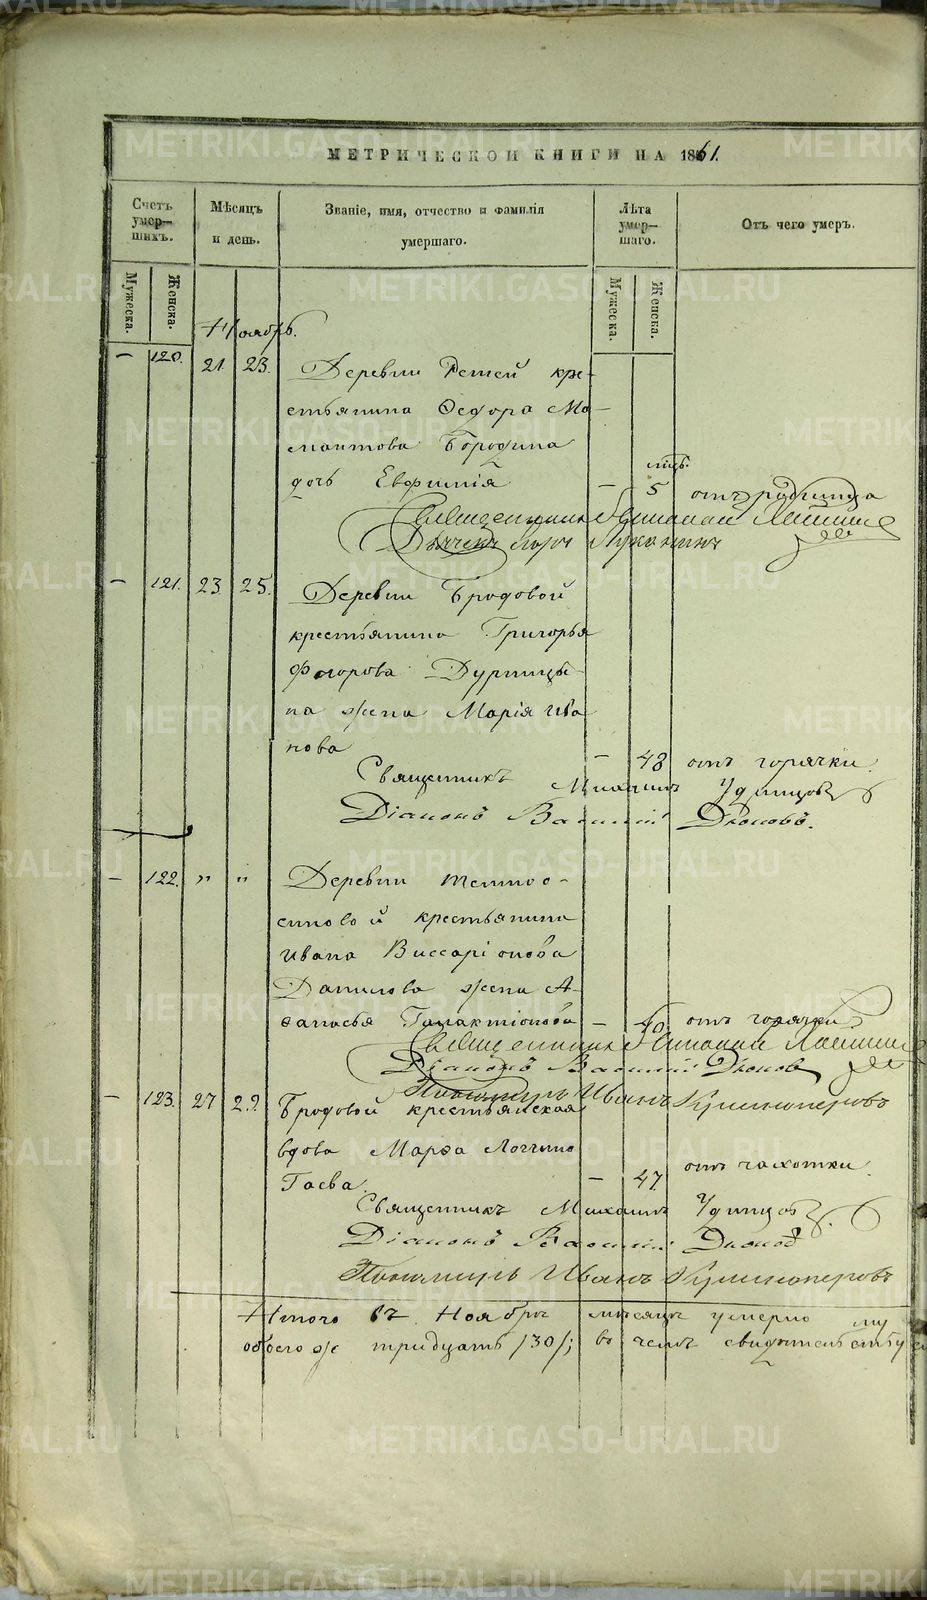 МЕТРИЧЕСКОЙ КНИГИ НА 1861.
Счетъ умер-шихъ.
Мѣсяцъ и день.
Званіе, имя, отчество и фамилія умершаго.
Лѣта умер-шаго.
Отъ чего умеръ.
Мужеска.
Женска.
Мужеска.
Женска.
Ноябрь.
– 120. 21 23. Деревни кре-
стьянина Ѳедора Ма-
мантова Бородина
мѣсц.
дочь Евфимія – 5 отъ родимца
Священникъ
Дьячекъ
– 121. 23 25. Деревни Бродовой
крестьянина Григорья
Фогорова Дурницы-
на жена Марія Ива
нова – 48 отъ горячки.
Священникъ Михаилъ Удинцовъ
Діаконъ Василій Дьконовъ.
– 122. " " Деревни
синовой крестьянина
Ивана Виссаріонова
Данилова жена А-
ѳанасья Галактіонова – 40. отъ горячки.
Священникъ
Діаконъ Василій Дьконовъ
Пономарь Иванъ
– 123. 27 29. Бродовой крестьянская
вдова Марѳа Логгино
Гаева. – 47. отъ чахотки.
Священникъ Михаилъ Удинцовъ
Діаконъ Василій Дьконовъ
Пономарь Иванъ
Итого въ Ноябрѣ мѣсяцѣ умерло му
обоего же тридцать /30/; въ чемъ свидѣтельству